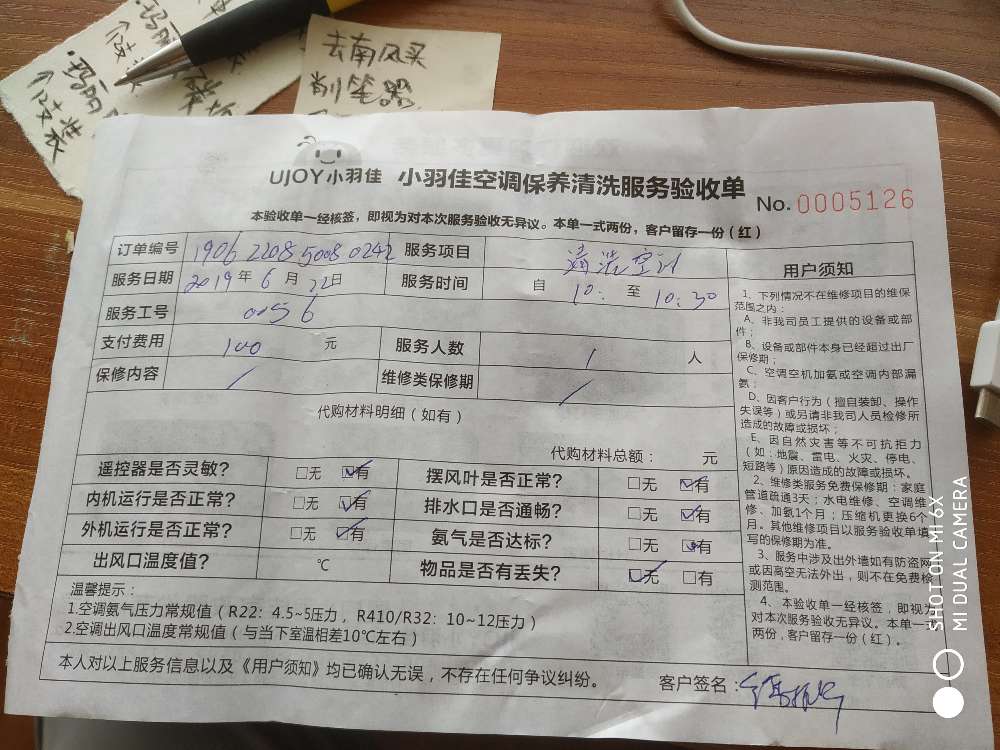 去南风买
削笔器
UJOY小羽佳 小羽佳空调保养清洗服务验收单 No.0005126
本验收单一经核签，即视为对本次服务验收无异议。本单一式两份，客户留存一份（红）
订单编号 1906 2208 5008 0242 服务项目 清洗空计
服务日期 2019年 6 月 22日 服务时间 自 10: 至 10:30
服务工号 0056
支付费用 100 元 服务人数 1 人
保修内容 / 维修类保修期 /
代购材料明细（如有）
代购材料总额： 元
遥控器是否灵敏？ □无 ☑有 摆风叶是否正常？ □无 ☑有
内机运行是否正常？ □无 ☑有 排水口是否通畅？ □无 ☑有
外机运行是否正常？ □无 ☑有 氨气是否达标？ □无 ☑有
出风口温度值？ ℃ 物品是否有丢失？ ☑无 □有
温馨提示：
1.空调氨气压力常规值（R22：4.5~5压力，R410/R32：10~12压力）
2.空调出风口温度常规值（与当下室温相差10℃左右）
本人对以上服务信息以及《用户须知》均已确认无误，不存在任何争议纠纷。 客户签名：
用户须知
1、下列情况不在维修项目的维保
范围之内：
A、非我司员工提供的设备或部
件；
B、设备或部件本身已经超过出厂
保修期；
C、空调空机加氨或空调内部漏
氨；
D、因客户行为（擅自装卸、操作
失误等）或另请非我司人员检修所
造成的故障或损坏；
E、因自然灾害等不可抗拒力
（如：地震、雷电、火灾、停电、
短路等）原因造成的故障或损坏。
2、维修类服务免费保修期：家庭
管道疏通3天；水电维修、空调维
修、加氨1个月；压缩机更换6个
月。其他维修项目以服务验收单填
写的保修期为准。
3、服务中涉及出外墙如有防盗网
或因高空无法外出，则不在免费检
测范围。
4、本验收单一经核签，即视为
对本次服务验收无异议。本单一式
两份，客户留存一份（红）。
SHOT ON MI 6X
MI DUAL CAMERA